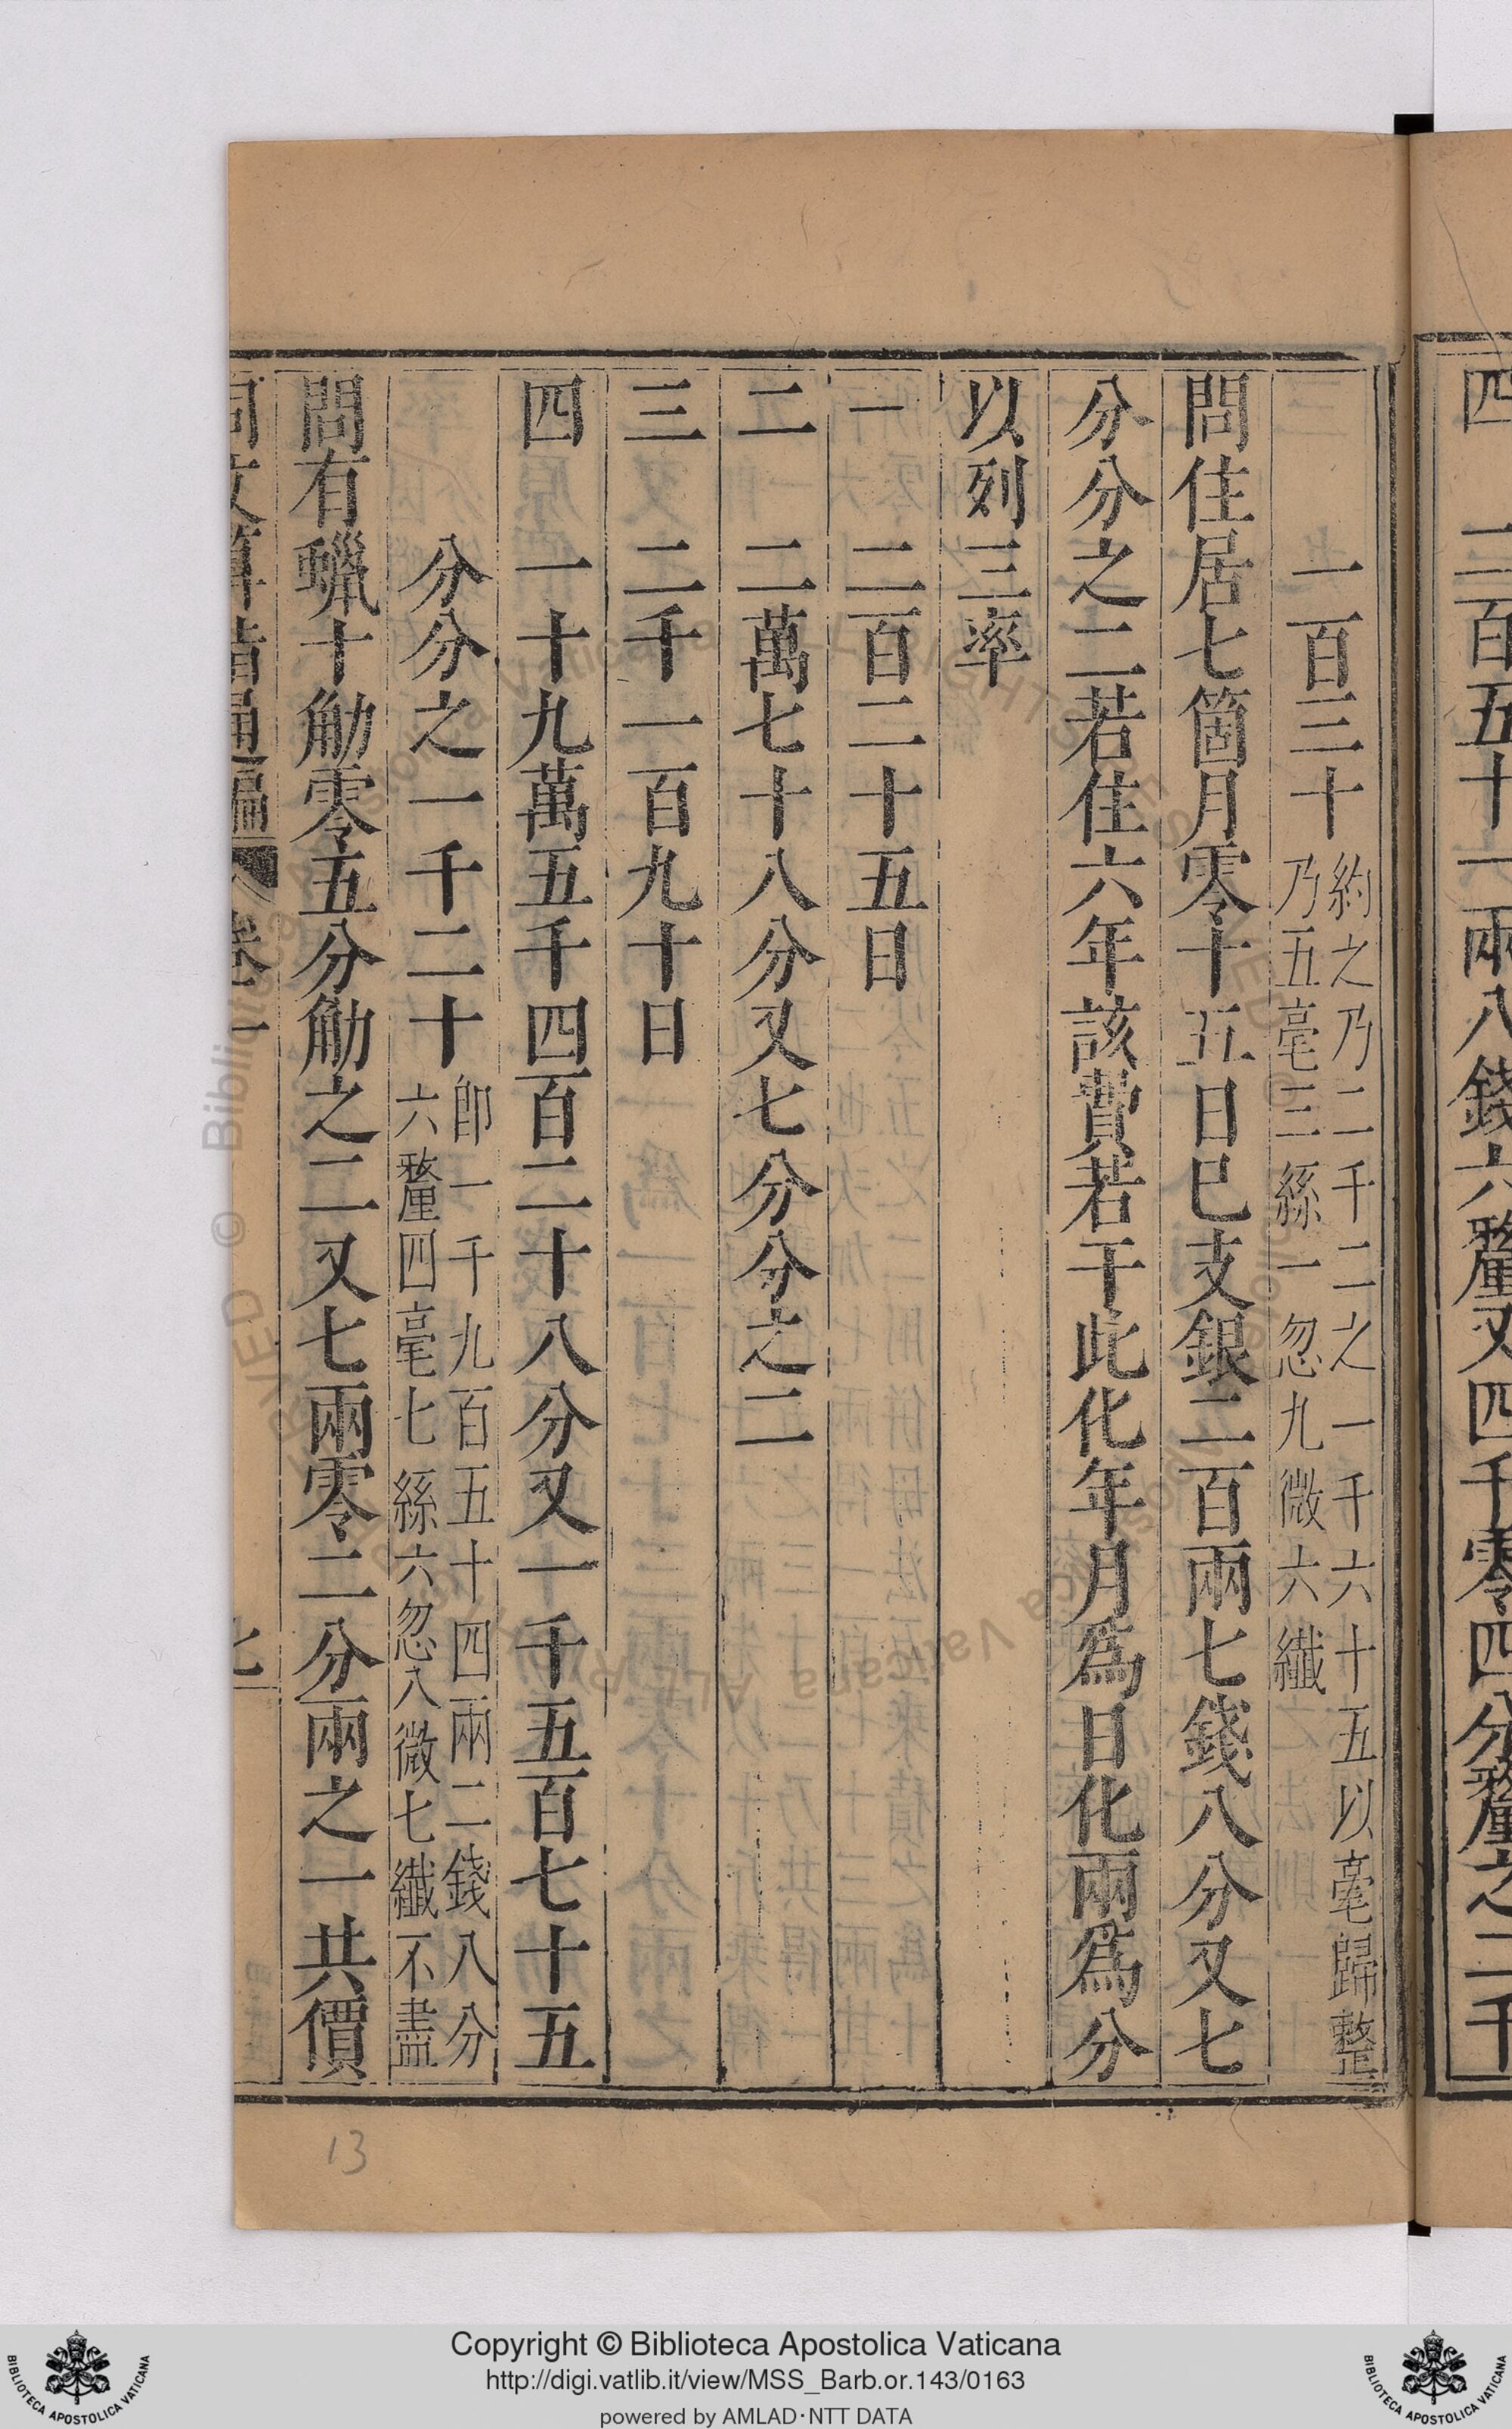 四 三百五十一兩八錢六釐又四千零四分釐之二千
一百三十 約之乃二千二之一千六十五以毫歸整
乃五毫三絲一忽九微六纖
問住居七箇月零十五日已支銀二百兩七錢八分又七
分分之二若住六年該費若干此化年月為日化兩為分
以列三率
一 二百二十五日
二 二萬七十八分又七分分之二
三 二千一百九十日
四 一十九萬五千四百二十八分又一千五百七十五
分分之一千二十 卽一千九百五十四兩二錢八分
六釐四毫七絲六忽八微七纖不盡
問有蠟十觔零五分觔之二又七兩零二分兩之一共價
同文算指通編 卷一 七
13
Copyright © Biblioteca Apostolica Vaticana
http://digi.vatlib.it/view/MSS_Barb.or.143/0163
powered by AMLAD·NTT DATA
BIBLIOTECA APOSTOLICA VATICANA
BIBLIOTECA APOSTOLICA VATICANA